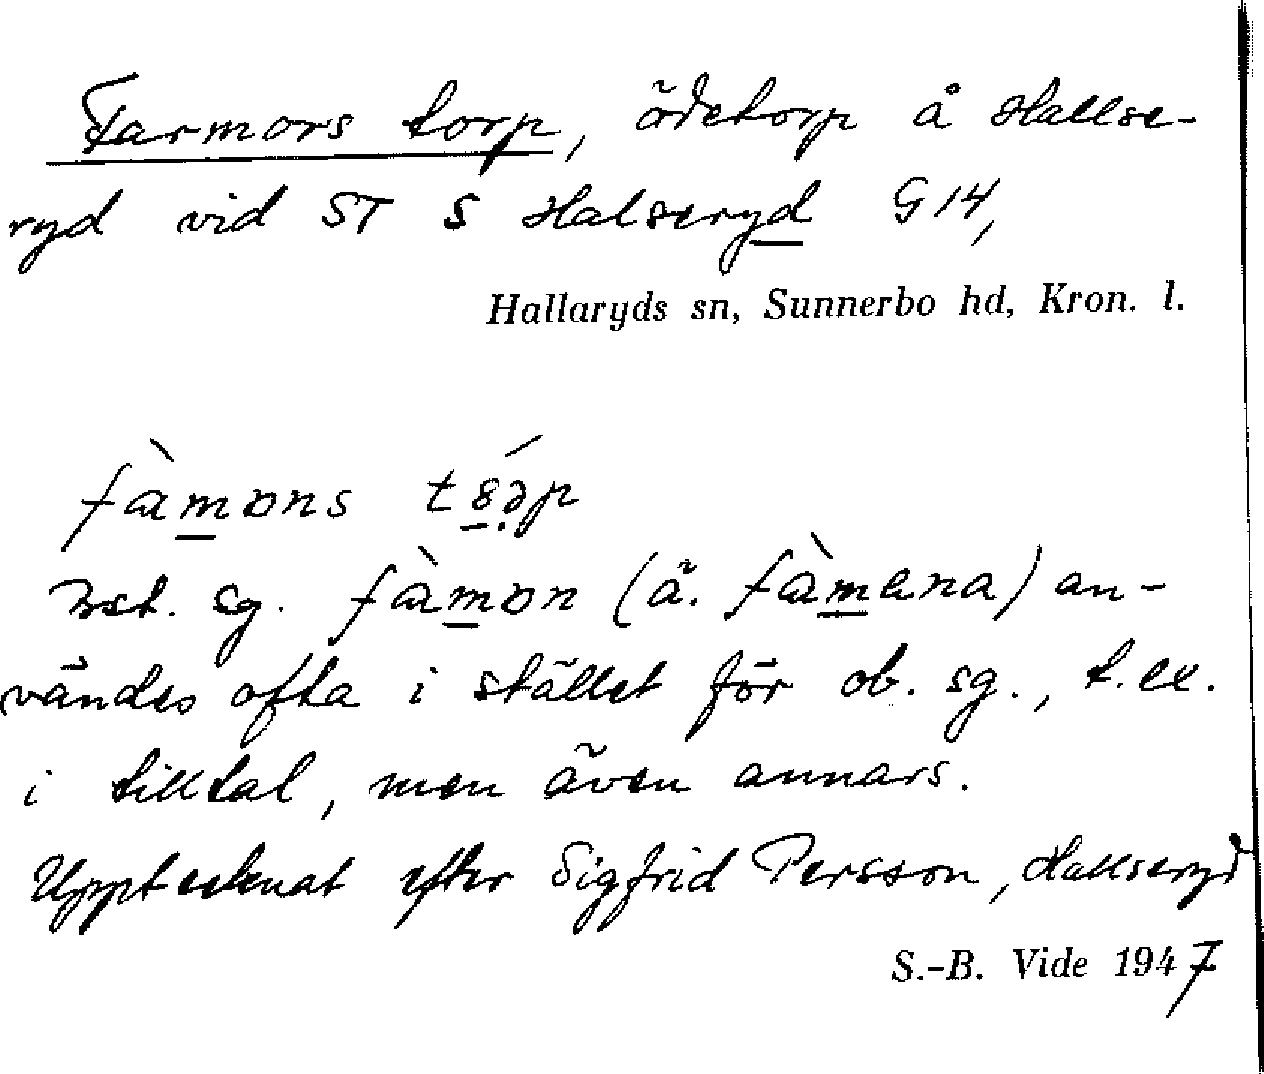 Farmors torp, ödetorp å Hallse-
ryd vid ST S Halseryd G 14,
Hallaryds sn, Sunnerbo hd, Kron. l.
fàmɒns
Best. sg. fàmɒn (ä. fàmɑna) an-
vändes ofta i stället för ob. sg., t.ex.
i tilltal, men även annars.
Upptecknat efter Sigfrid Persson, Hallseryd
S.-B. Vide 1947